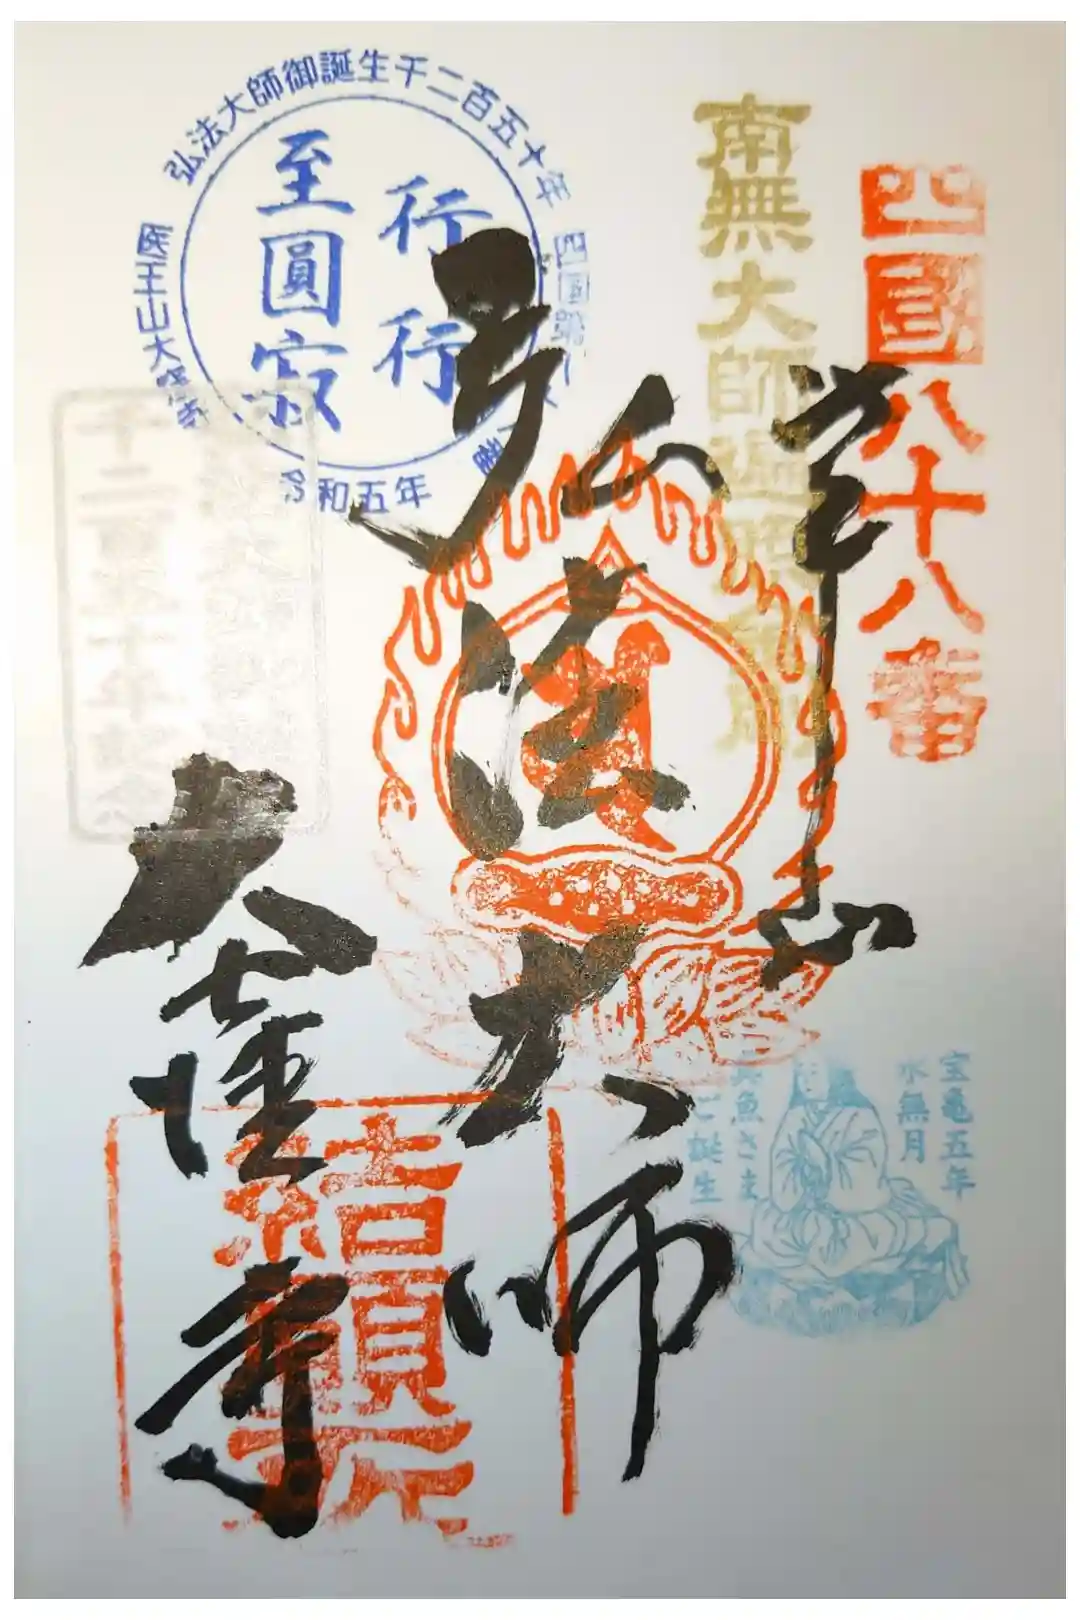 四國八十八番
奉
南無大師遍照金剛
弘法大師
大窪寺
弘法大師御誕生千二百五十年
医王山大窪寺
令和五年
行行
至圓寂
千二百五十年
宝亀五年
水無月
真魚さま
ご誕生
結願所